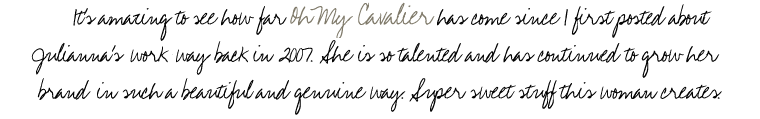 It's amazing to see how far Oh My Cavalier has come since I first posted about
Julianna's work way back in 2007. She is so talented and has continued to grow her
brand in such a beautiful and genuine way. Super sweet stuff this woman creates.